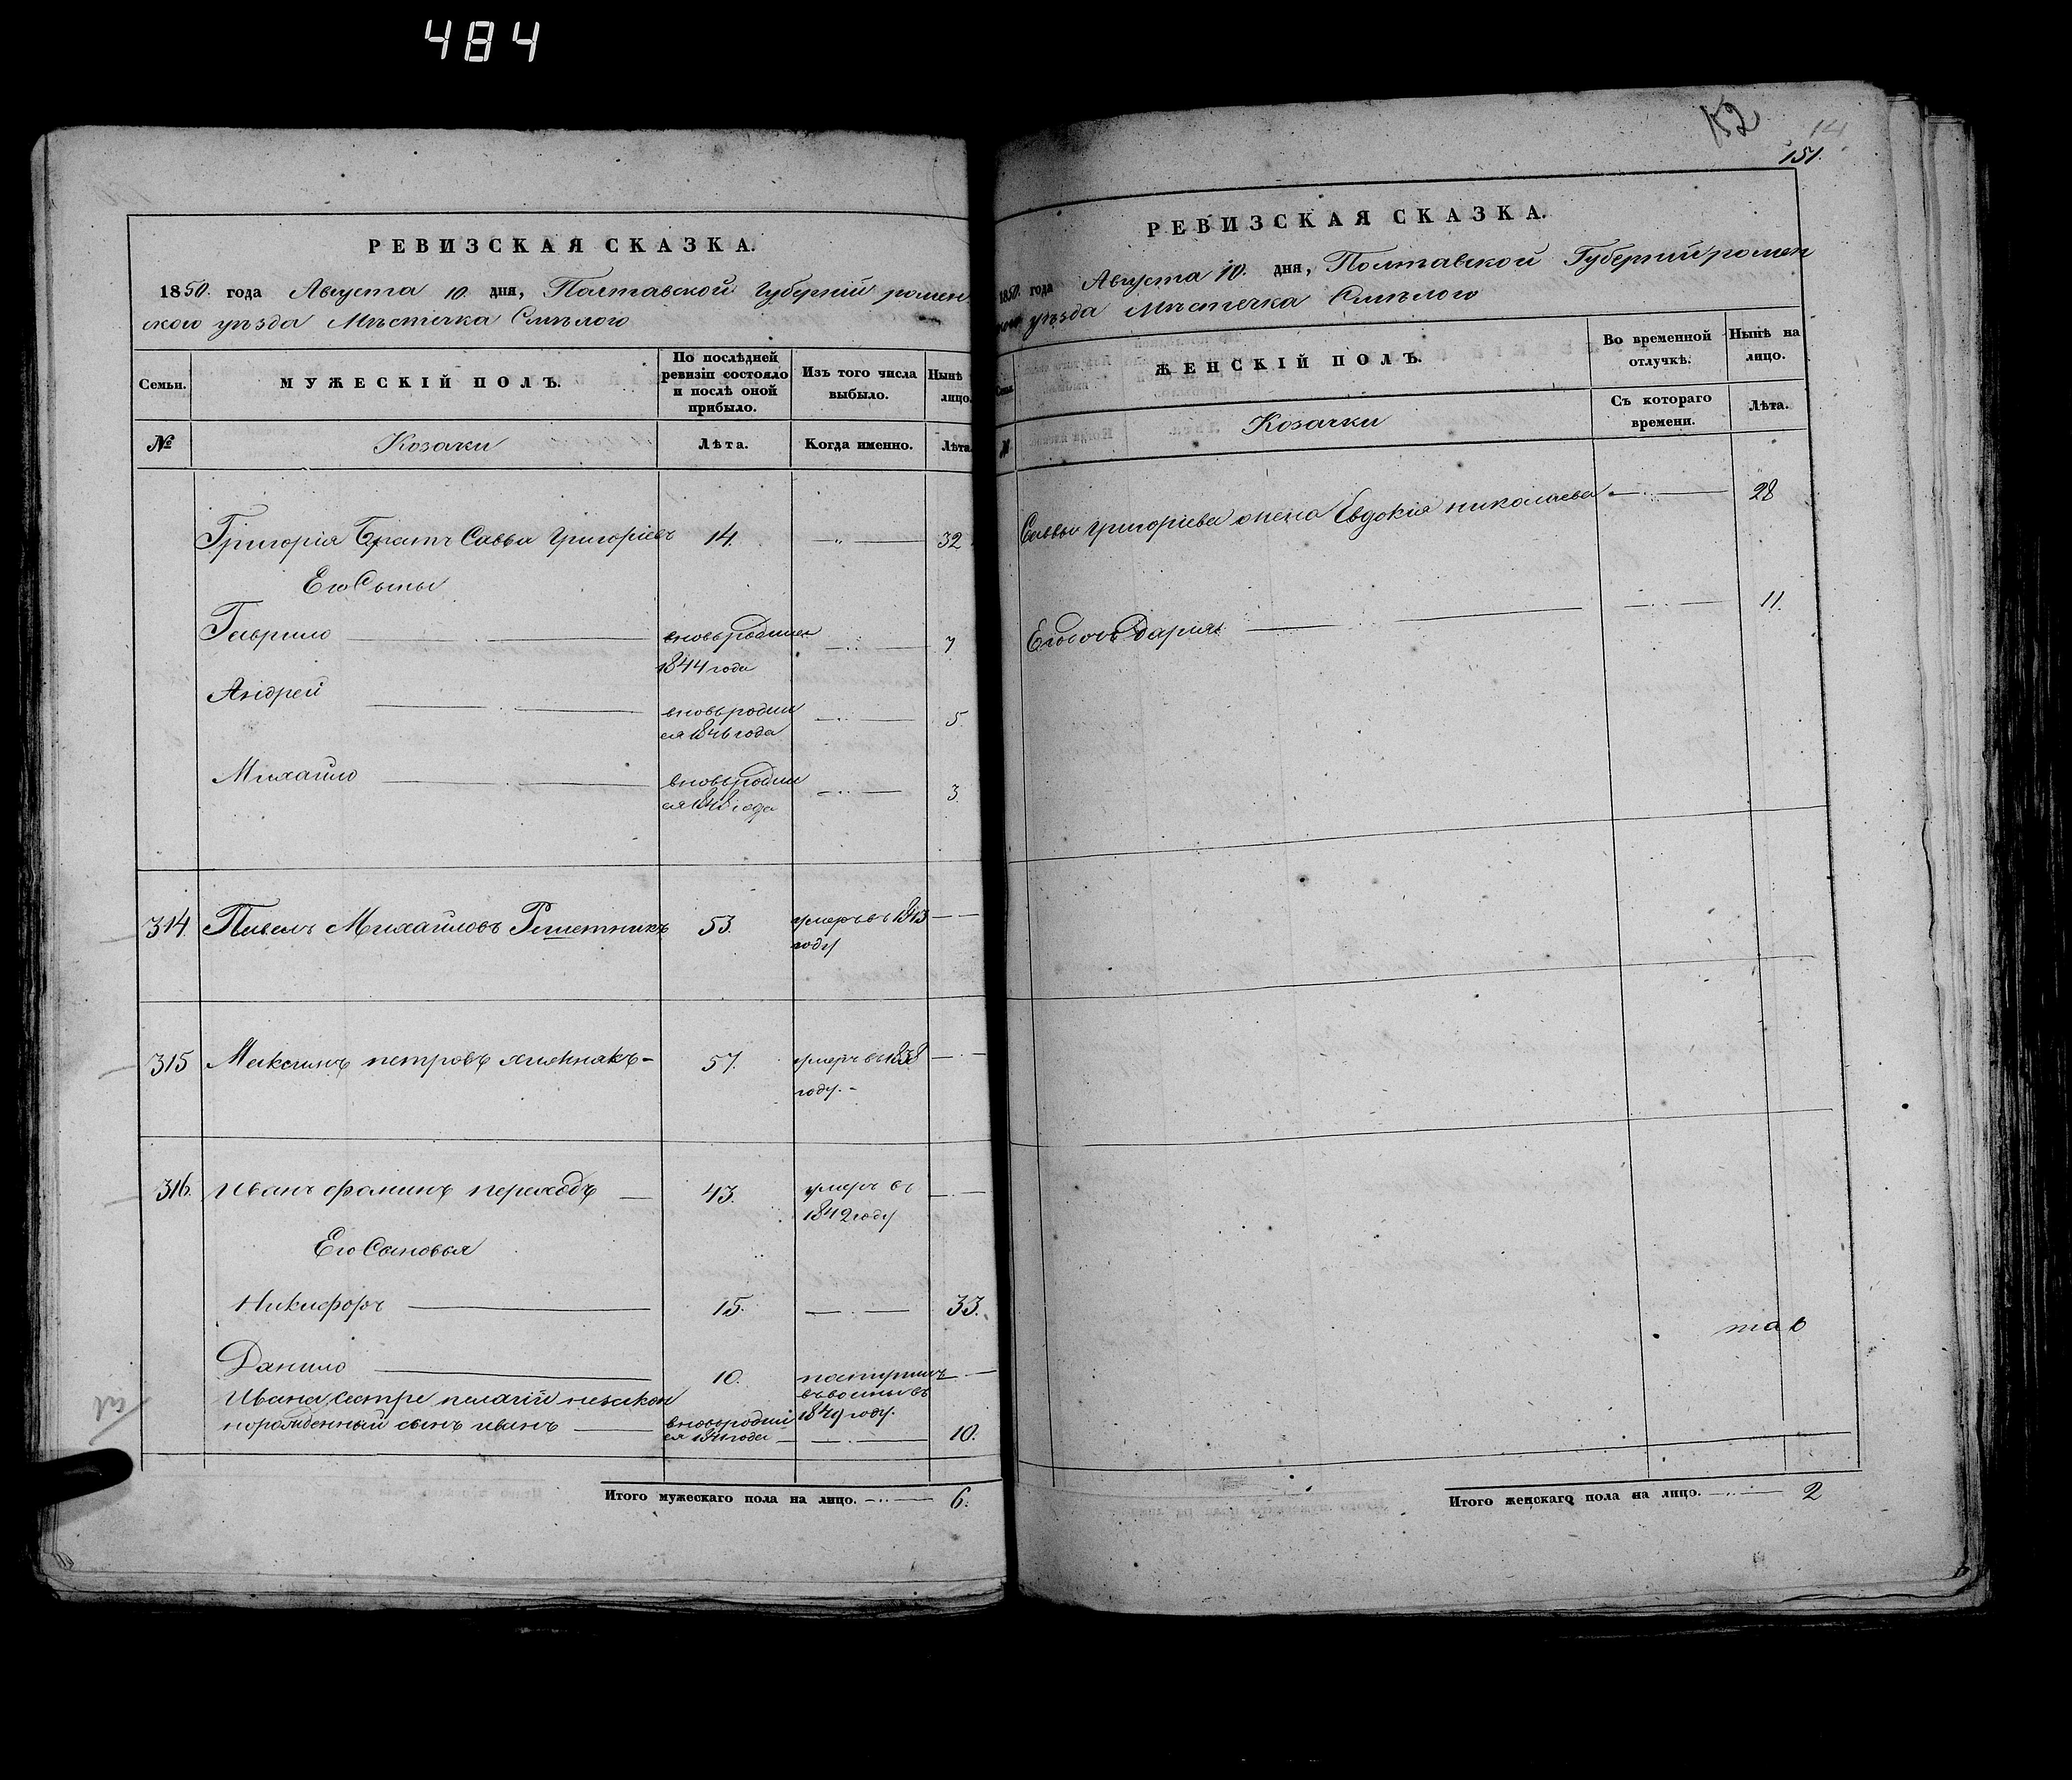 484
РЕВИЗСКАЯ СКАЗКА.
1850. года Августа 10. дня, Полтавской Губерніи ромен
ского уѣзда Мѣстечка Смѣлого
Семьи.
МУЖЕСКІЙ ПОЛЪ.
По послѣдней
ревизіи состояло
и послѣ оной
прибыло.
Изъ того числа
выбыло.
Нынѣ
лицо.
№
Козачки
Лѣта.
Когда именно.
Лѣта.
Григорія Братъ Савва Григоріевъ 14. 32
Его Сыны
Гаврило вновь родился 7
1844 года
Андрей
вновь родил 5.
ся 1846 года
Михайло вновь родил 3.
ся 1848 года
314. Павелъ Михайловъ Решетникъ 53. умеръ въ 1843
году
315 Максимъ петровъ 57. умеръ въ 1838
году.
316. Иванъ фоминъ переходъ 43. умеръ въ
1842 году
Его Сыновья
Никифоръ 15. 33.
Данило 10. поступилъ
въ 1849 году.
Ивана сестре пелагіи незакон
норожденный сынъ иванъ вновь родил 10.
ся 1841 года
Итого мужескаго пола на лицо. 6.
152
14
151.
РЕВИЗСКАЯ СКАЗКА.
1850. года Августа 10. дня, Полтавской Губерніи ромен
ского уѣзда Мѣстечка Смѣлого
Семьи
ЖЕНСКІЙ ПОЛЪ.
Во временной
отлучкѣ.
Нынѣ на
лицо.
№
Козачки
Съ котораго
времени.
Лѣта.
Саввы григоріева жена Евдокія николаева 28
Его дочь Дарія 11.
Итого женскаго пола на лицо. 2